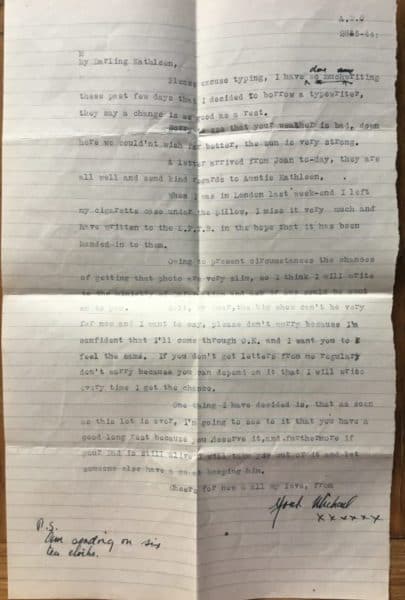 A.P.O
My Darling Kathleen,
Please excuse typing, I have done so much writing
these past few days that I decided to borrow a typewriter,
they say a change is as good as a rest.
Sorry to see that your weather is bad, down
here we could'nt wish for better, the sun is very strong.
A letter arrived from Joan to-day, they are
all well and send kind regards to Auntie Kathleen.
When I was in London last week-end I left
my cigarette case under the pillow, I miss it very much and
have written to the in the hope that it has been
handed in to them.
Owing to present circumstances the chances
of getting that photo are very slim, so I think I will write
to the Ministry of
on to you. my dear, the big show can't be very
far now and I want to say, please don't worry because I'm
confident that I'll come through O.K. and I want you to
feel the same. If you don't get letters from me regulary
don't worry because you can depend on it that I will write
every time I get the chance.
One thing I have decided is, that as soon
as this lot is over, I'm going to see to it that you have a
good long Rest because you deserve it, and furthermore if
your Dad is still alive I will take you out of it and let
someone else have a go at keeping him.
Cheers for now & all my love, from
Your Michael
x x x x x x
P.S.
Am sending on six
tea cloths.